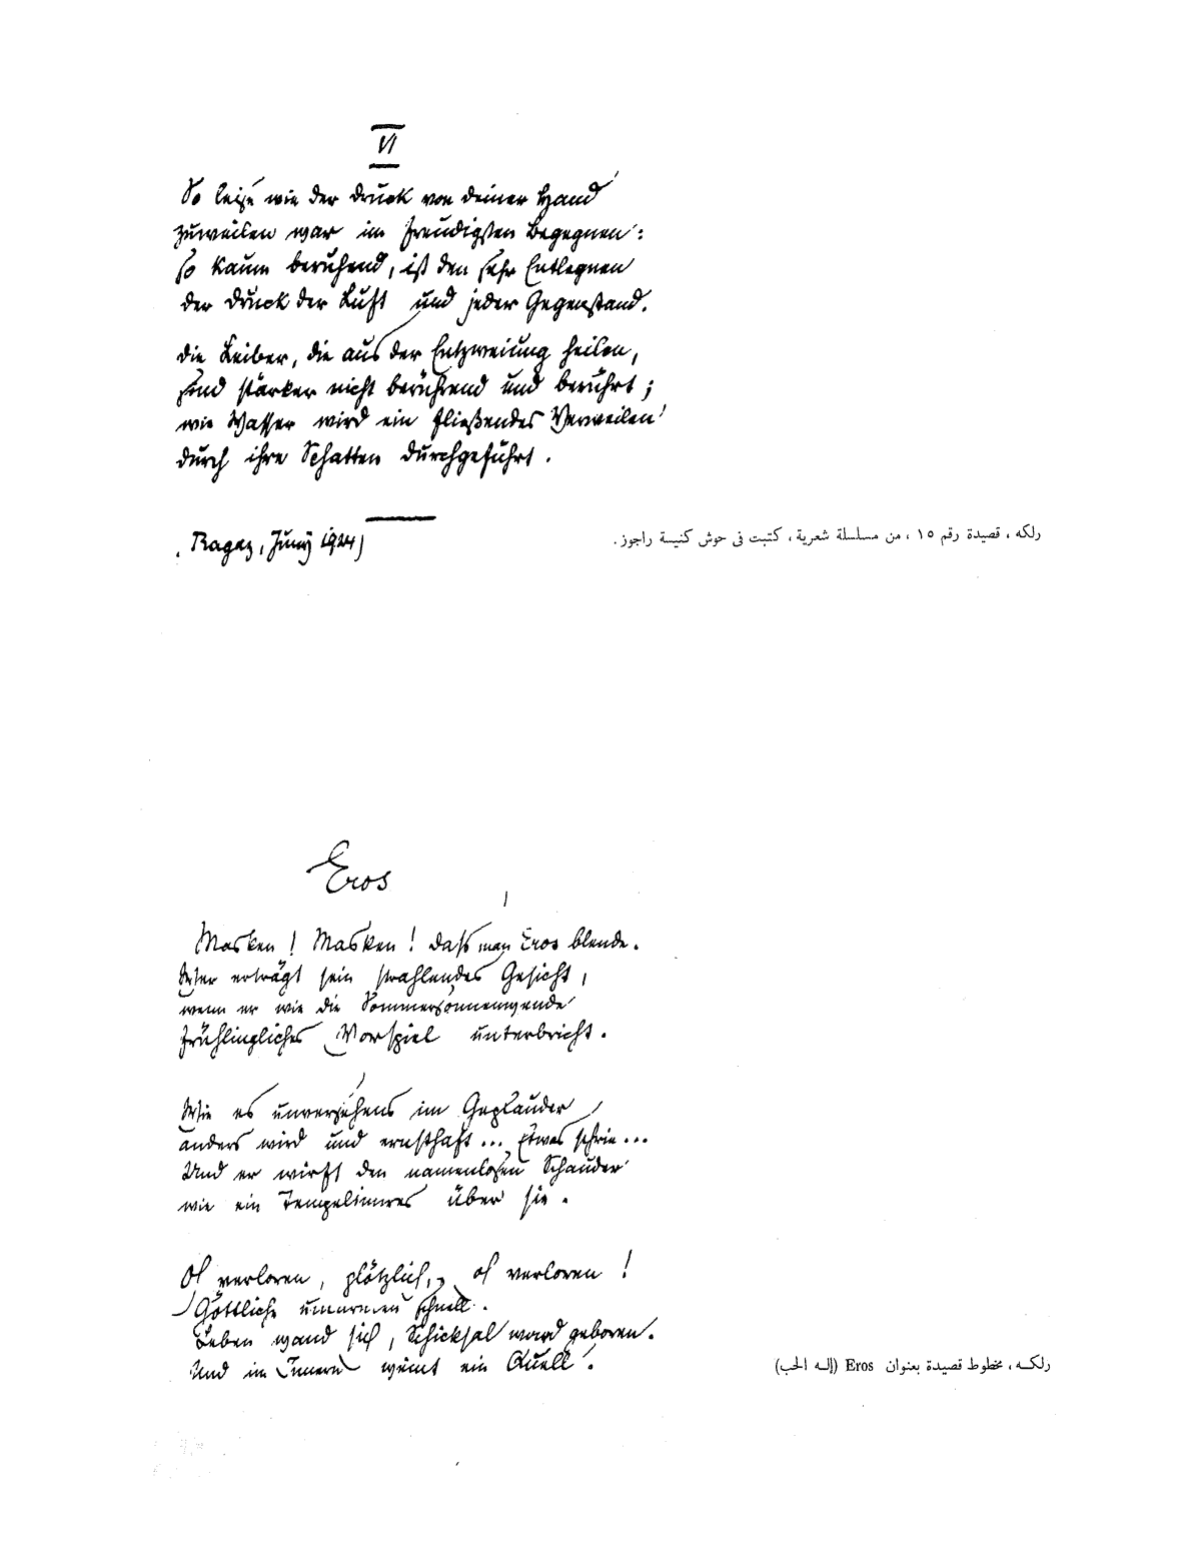 VI
So leise wie der Druck von deiner Hand
zuweilen war im freudigsten Begegnen:
so kaum beruhend, ist den sehr Entlegnen
der Druck der Luft und jeder Gegenstand.
Die Leiber, die aus der Entzweiung heilen,
sind stärker nicht berührend und berührt;
wie Wasser wird ein fließendes Verweilen
durch ihre Schatten durchgeführt.
Ragaz, Juny 1924)
رلكه ، قصيدة رقم ١٥ ، من مسلسلة شعرية ، كتبت فى حوش كنيسة راجوز .
Eros
Masken! Masken! Daß man Eros blende.
Wer erträgt sein strahlendes Gesicht,
wenn er wie die Sommersonnenwende
frühlingliches Vorspiel unterbricht.
Wie es unversehens im Geplauder
anders wird und ernsthaft... Etwas schrie...
Und er wirft den namenlosen Schauder
wie ein Tempelinnres über sie.
Oh verloren, plötzlich, oh verloren!
Göttliche umarmen schnell.
Leben wand sich, Schicksal ward geboren.
Und im Innern weint ein Quell.
رلكـه ، مخطوط قصيدة بعنوان Eros (إلـه الحب)